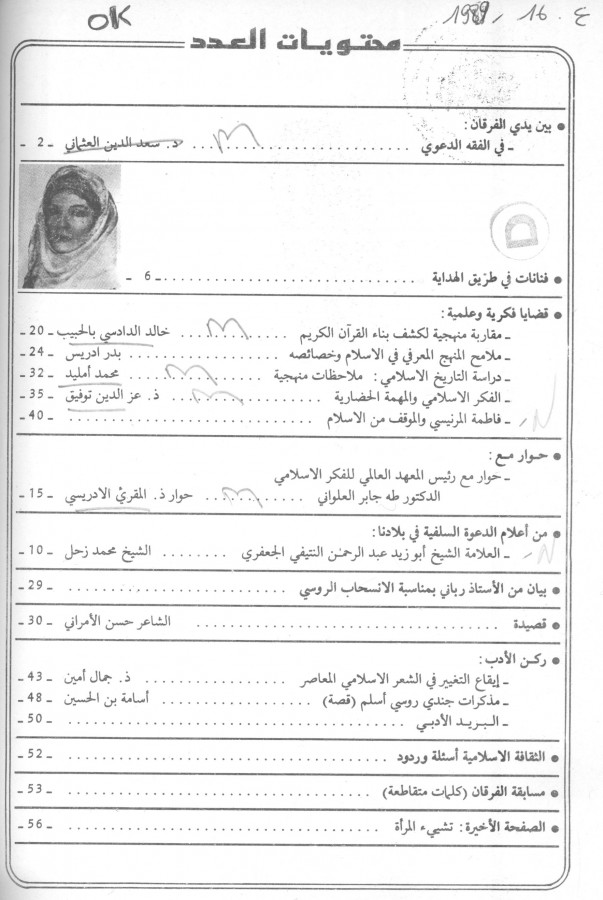 OK
ع . 16 - 1989
محتويات العدد
● بين يدي الفرقان :
ـ في الفقه الدعوي .......... د. سعد الدين العثماني ـ 2 ـ
D
● فنانات في طريق الهداية .......... ـ 6 ـ
● قضايا فكرية وعلمية :
ـ مقاربة منهجية لكشف بناء القرآن الكريم .......... خالد الدادسي بالحبيب ـ 20 ـ
ـ ملامح المنهج المعرفي في الاسلام وخصائصه .......... بدر ادريس ـ 24 ـ
ـ دراسة التاريخ الاسلامي : ملاحظات منهجية .......... محمد أمليد ـ 32 ـ
ـ الفكر الاسلامي والمهمة الحضارية .......... ذ. عز الدين توفيق ـ 35 ـ
ـ فاطمة المرنيسي والموقف من الاسلام .......... ـ 40 ـ
● حوار مع :
ـ حوار مع رئيس المعهد العالمي للفكر الاسلامي
الدكتور طه جابر العلواني .......... حوار ذ. المقرئ الادريسي ـ 15 ـ
● من أعلام الدعوة السلفية في بلادنا :
ـ العلامة الشيخ أبو زيد عبد الرحمن النتيفي الجعفري .......... الشيخ محمد زحل ـ 10 ـ
● بيان من الأستاذ رباني بمناسبة الانسحاب الروسي .......... ـ 29 ـ
● قصيدة .......... الشاعر حسن الأمراني ـ 30 ـ
● ركن الأدب :
ـ إيقاع التغيير في الشعر الاسلامي المعاصر .......... ذ. جمال أمين ـ 43 ـ
ـ مذكرات جندي روسي أسلم (قصة) .......... أسامة بن الحسين ـ 48 ـ
ـ البريد الأدبي .......... ـ 50 ـ
● الثقافة الاسلامية أسئلة وردود .......... ـ 52 ـ
● مسابقة الفرقان (كلمات متقاطعة) .......... ـ 53 ـ
● الصفحة الأخيرة : تشييء المرأة .......... ـ 56 ـ